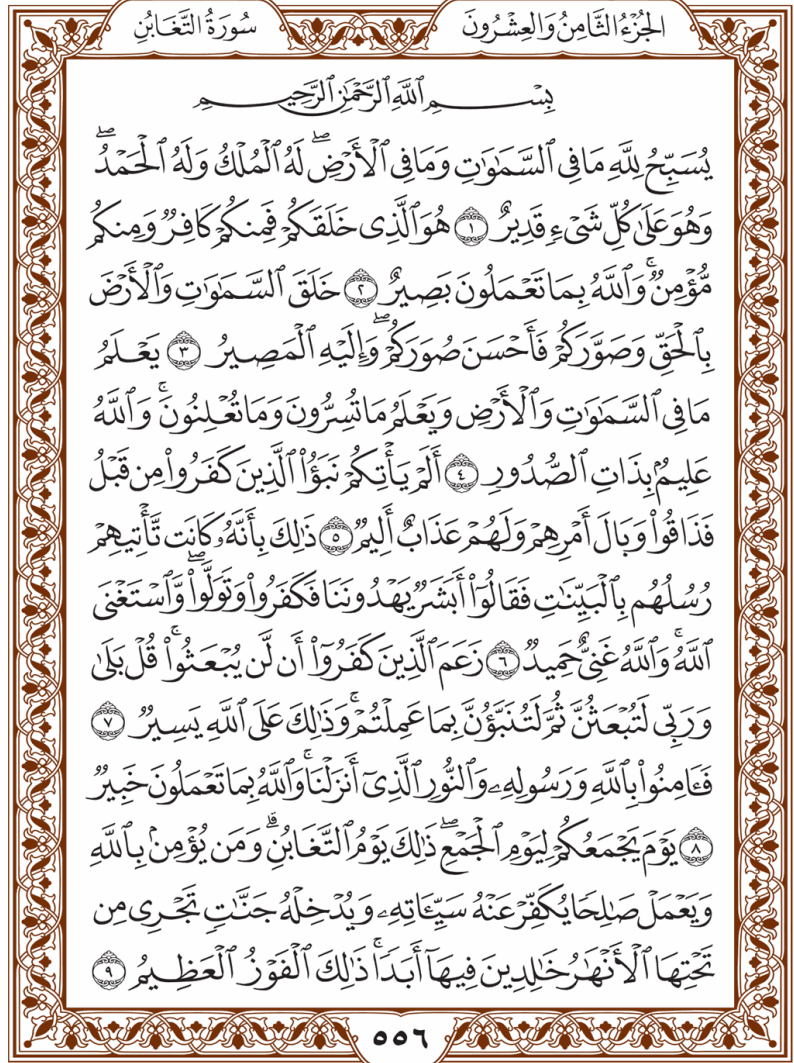 سُورَةُ التَّغَابُنِ
الجُزْءُ الثَّامِنُ وَالعِشْرُونَ
بِسْمِ ٱللَّهِ ٱلرَّحْمَٰنِ ٱلرَّحِيمِ
يُسَبِّحُ لِلَّهِ مَا فِى ٱلسَّمَٰوَٰتِ وَمَا فِى ٱلْأَرْضِۖ لَهُ ٱلْمُلْكُ وَلَهُ ٱلْحَمْدُۖ
وَهُوَ عَلَىٰ كُلِّ شَىْءٍ قَدِيرٌ ١ هُوَ ٱلَّذِى خَلَقَكُمْ فَمِنكُمْ كَافِرٌ وَمِنكُم
مُّؤْمِنٌۚ وَٱللَّهُ بِمَا تَعْمَلُونَ بَصِيرٌ ٢ خَلَقَ ٱلسَّمَٰوَٰتِ وَٱلْأَرْضَ
بِٱلْحَقِّ وَصَوَّرَكُمْ فَأَحْسَنَ صُوَرَكُمْۖ وَإِلَيْهِ ٱلْمَصِيرُ ٣ يَعْلَمُ
مَا فِى ٱلسَّمَٰوَٰتِ وَٱلْأَرْضِ وَيَعْلَمُ مَا تُسِرُّونَ وَمَا تُعْلِنُونَۚ وَٱللَّهُ
عَلِيمٌۢ بِذَاتِ ٱلصُّدُورِ ٤ أَلَمْ يَأْتِكُمْ نَبَؤُا۟ ٱلَّذِينَ كَفَرُوا۟ مِن قَبْلُ
فَذَاقُوا۟ وَبَالَ أَمْرِهِمْ وَلَهُمْ عَذَابٌ أَلِيمٌ ٥ ذَٰلِكَ بِأَنَّهُۥ كَانَت تَّأْتِيهِمْ
رُسُلُهُم بِٱلْبَيِّنَٰتِ فَقَالُوٓا۟ أَبَشَرٌ يَهْدُونَنَا فَكَفَرُوا۟ وَتَوَلَّوا۟ۖ وَّٱسْتَغْنَى
ٱللَّهُۚ وَٱللَّهُ غَنِىٌّ حَمِيدٌ ٦ زَعَمَ ٱلَّذِينَ كَفَرُوٓا۟ أَن لَّن يُبْعَثُوا۟ۚ قُلْ بَلَىٰ
وَرَبِّى لَتُبْعَثُنَّ ثُمَّ لَتُنَبَّؤُنَّ بِمَا عَمِلْتُمْۚ وَذَٰلِكَ عَلَى ٱللَّهِ يَسِيرٌ ٧
فَـَٔامِنُوا۟ بِٱللَّهِ وَرَسُولِهِۦ وَٱلنُّورِ ٱلَّذِىٓ أَنزَلْنَاۚ وَٱللَّهُ بِمَا تَعْمَلُونَ خَبِيرٌ
٨ يَوْمَ يَجْمَعُكُمْ لِيَوْمِ ٱلْجَمْعِۖ ذَٰلِكَ يَوْمُ ٱلتَّغَابُنِۗ وَمَن يُؤْمِنۢ بِٱللَّهِ
وَيَعْمَلْ صَٰلِحًا يُكَفِّرْ عَنْهُ سَيِّـَٔاتِهِۦ وَيُدْخِلْهُ جَنَّٰتٍ تَجْرِى مِن
تَحْتِهَا ٱلْأَنْهَٰرُ خَٰلِدِينَ فِيهَآ أَبَدًاۚ ذَٰلِكَ ٱلْفَوْزُ ٱلْعَظِيمُ ٩
٥٥٦